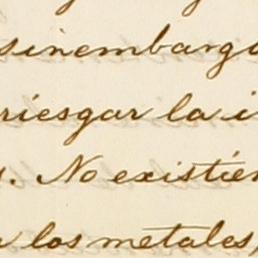 sinembarg
riesgar la i
s. No existien
los metales,